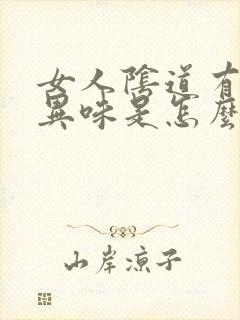 女人陰道有
異味是怎麼
山岸涼子